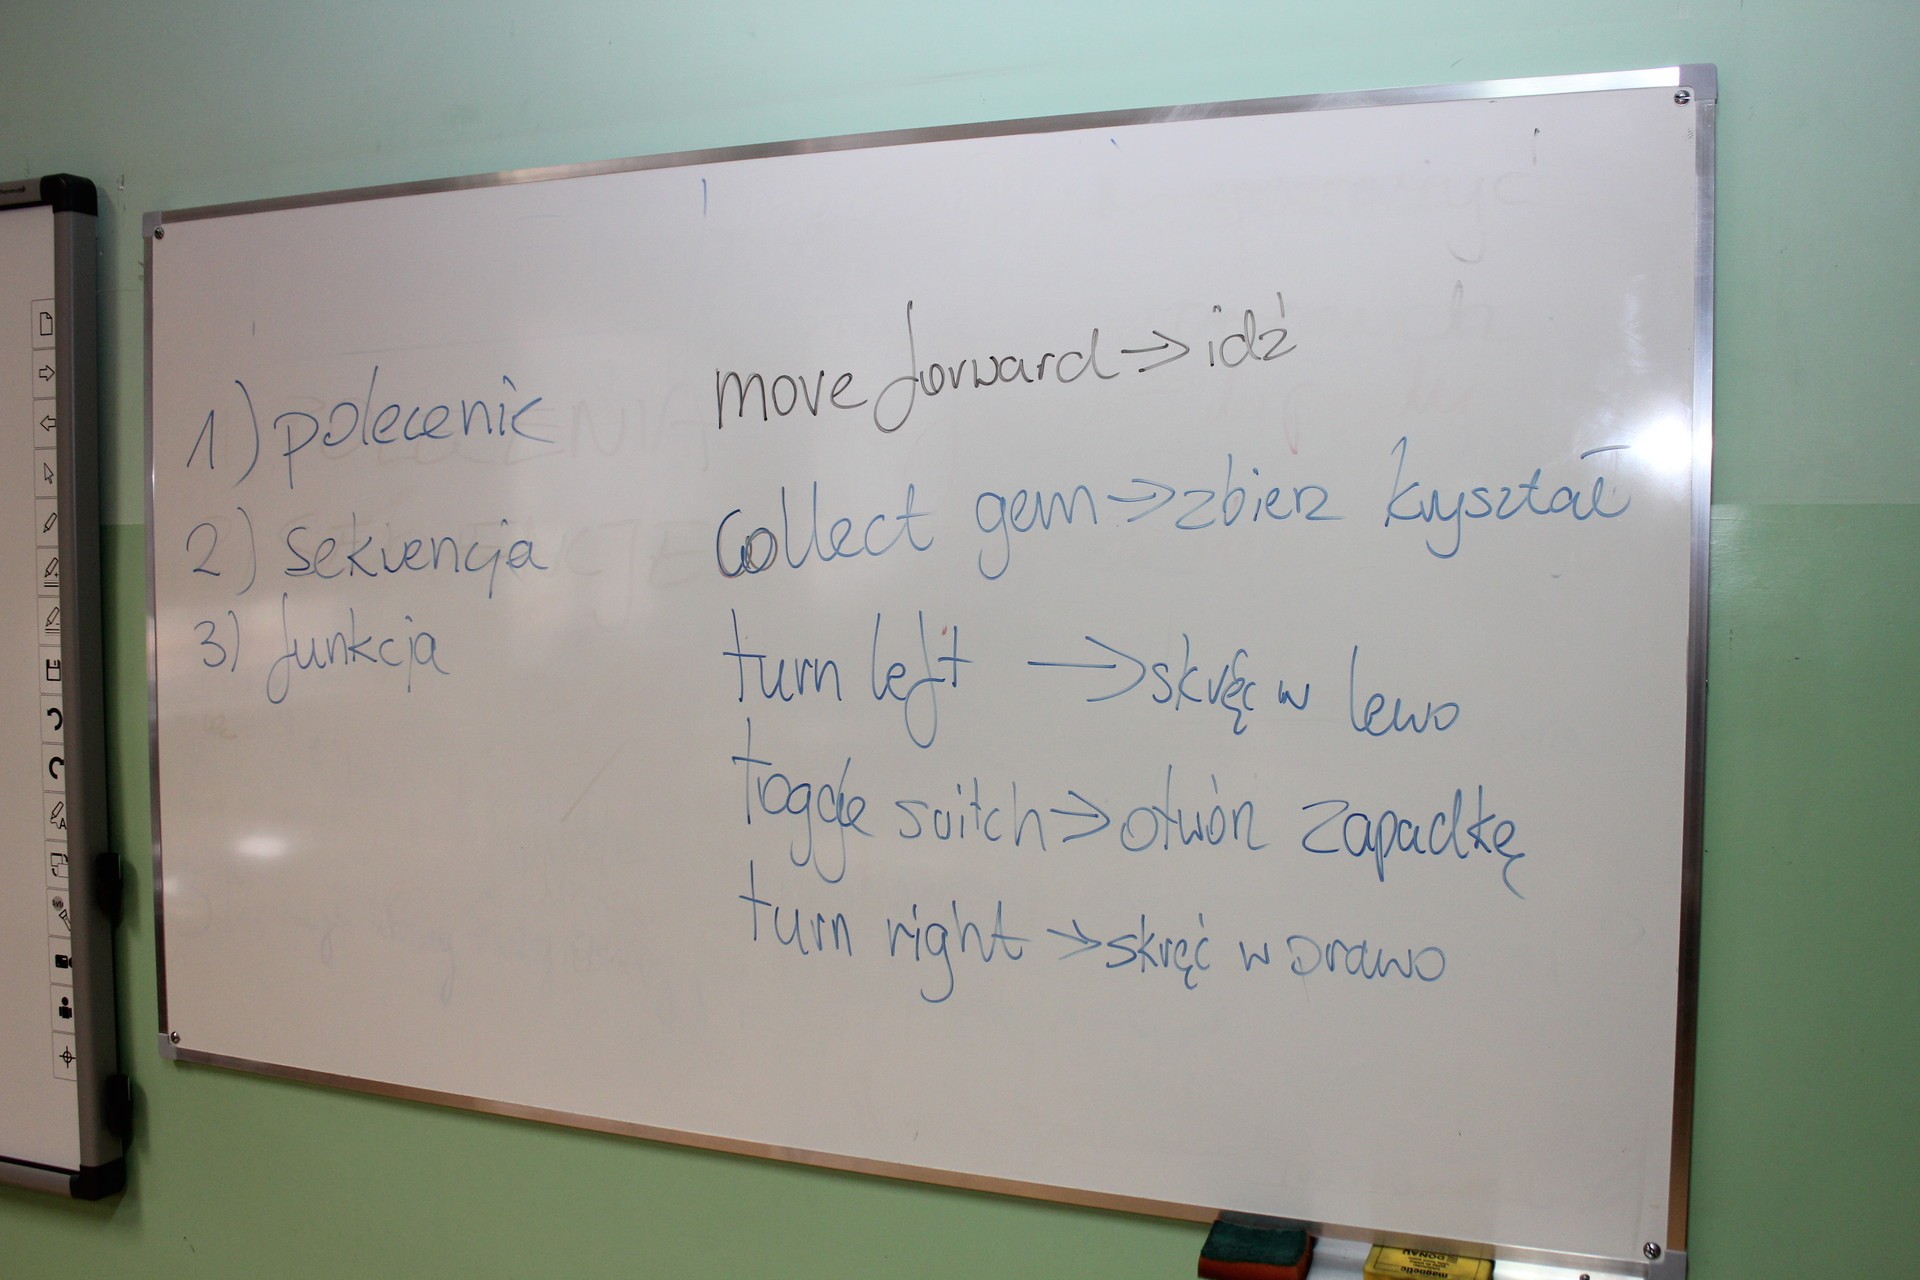 1) polecenie
2) sekwencja
3) funkcja
move forward → idź
Collect gem → zbierz kryształ
turn left → skręć w lewo
toggle switch → otwórz zapadkę
turn right → skręć w prawo
magnetic
DONAU